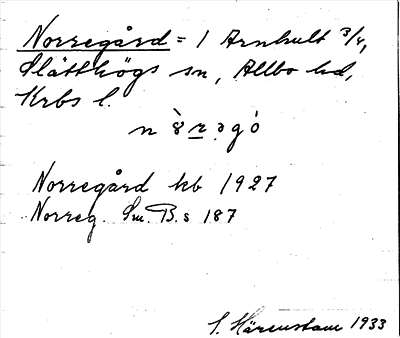 Norregård = 1 Arnhult 3/4,
Slätthögs sn, Allbo hd,
Krbs l.
Norregård kb 1927
Norreg. Sm. B. s 187
S. Härenstam 1933